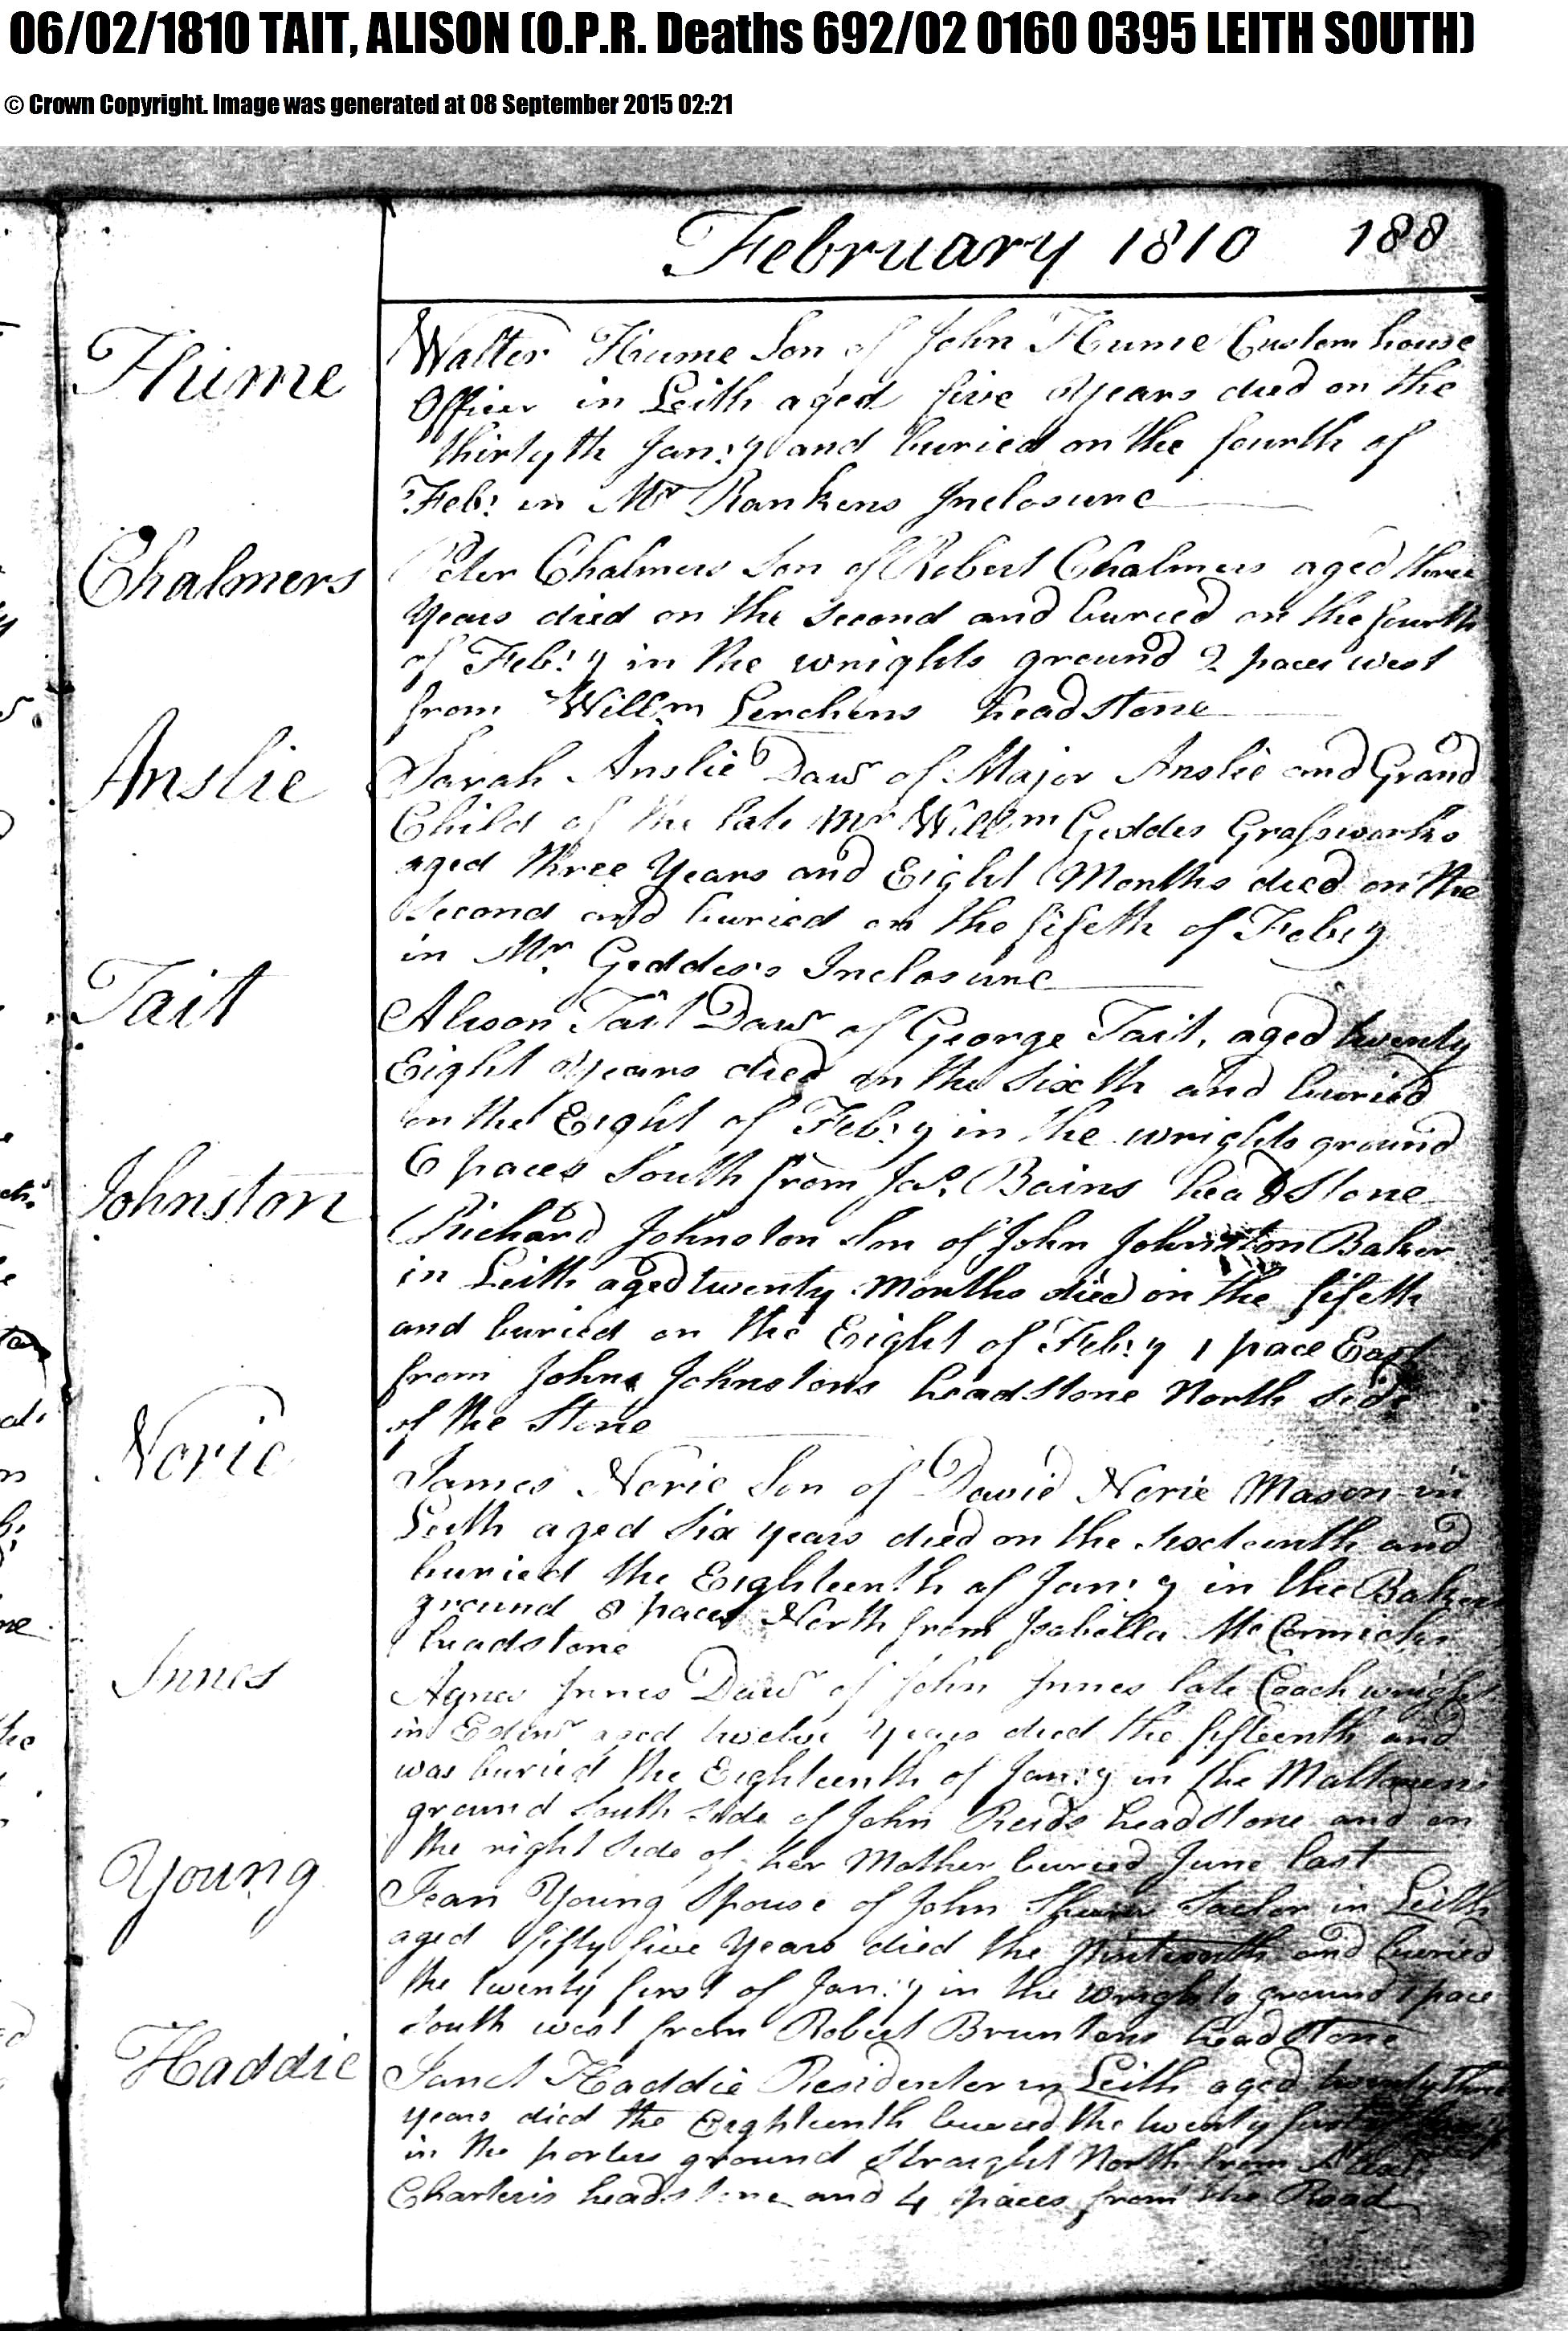 06/02/1810 TAIT, ALISON (O.P.R. Deaths 692/02 0160 0395 LEITH SOUTH)
© Crown Copyright. Image was generated at 08 September 2015 02:21
February 1810 188
Hume
Walter Hume Son of John Hume Custom house
Officer in Leith aged five Years died on the
thirtyth Jan:y and buried on the fourth of
Feb: in Mr Rankens Inclosure
Chalmers
Peter Chalmers Son of Robert Chalmers aged three
Years died on the second and buried on the fourth
of Feb:y in the wrights ground 2 paces west
from Willm headstone
Anslie
Sarah Anslie Daur of Major Anslie and Grand
Child of the late Mr Willm Geddes
aged three Years and Eight Months died on the
Second and buried on the fifeth of Feb:y
in Mr Geddes's Inclosure
Tait
Alison Tait Daur of George Tait, aged twenty
Eight Years died on the Sixth and buried
on the Eight of Feb:y in the wrights ground
6 paces South from Jas. Bains head Stone
Johnston
Richard Johnston Son of John Johnston Baker
in Leith aged twenty Months died on the fifeth
and buried on the Eight of Feb:y 1 pace East
from John Johnstons headstone North Side
of the Stone
Norie
James Norie Son of David Norie Mason in
Leith aged Six years died on the and
buried the Eighteenth of Jan:y in the Bakers
ground 8 paces North from Isabella McCormicks
headstone
Innes
Agnes Innes Daur of John Innes late Coach wright
in Edinr aged twelve Years died the fifteenth and
was buried the Eighteenth of Jan:y in the Maltmens
ground South Side of John Reids headstone and on
the right Side of her Mother buried June last
Young
Jean Young Spouse of John in Leith
aged fifty five Years died the Ninteenth and buried
the twenty first of Jan:y in the wrights ground 1 pace
South west from Robert Bruntons headstone
Haddie
Janet Haddie Residenter in Leith aged twenty three
years died the Eighteenth buried the twenty first
in the porters ground straight North from
Charteris headstone and 4 paces from the Road